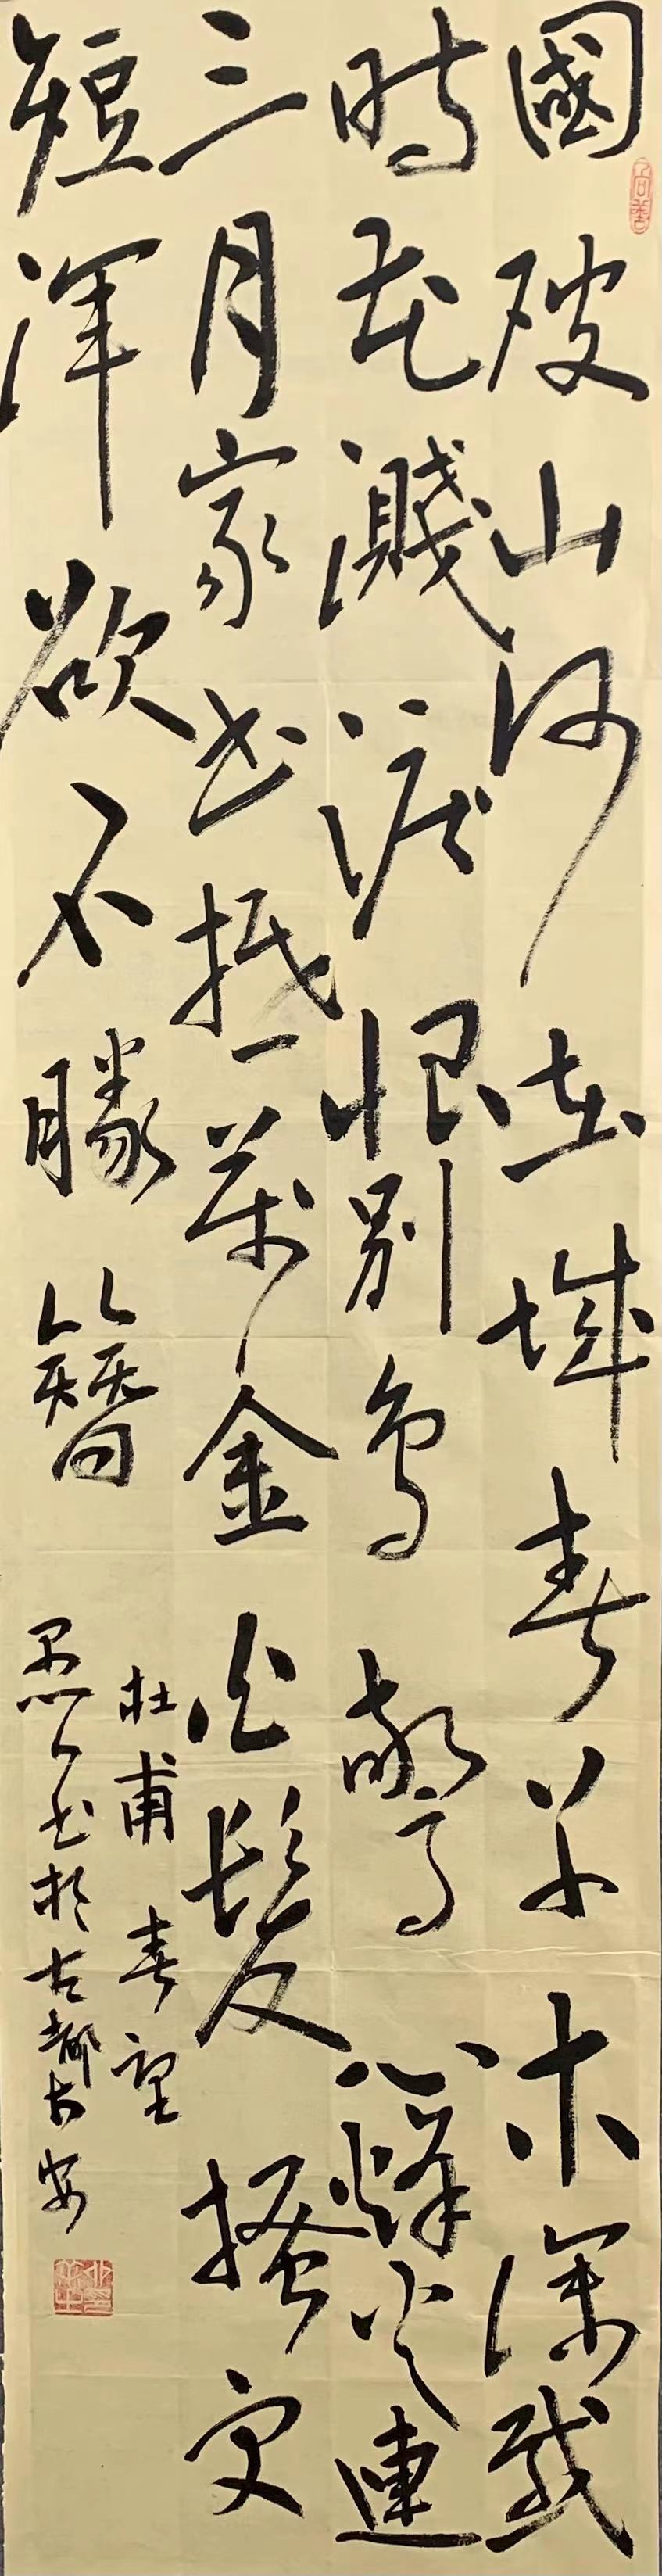 國破山河在城春草木深感
時花濺淚恨別鳥驚心烽火連
三月家書抵萬金白髮搔更
短渾欲不勝簪
杜甫春望
愚公書於古都安
尚善